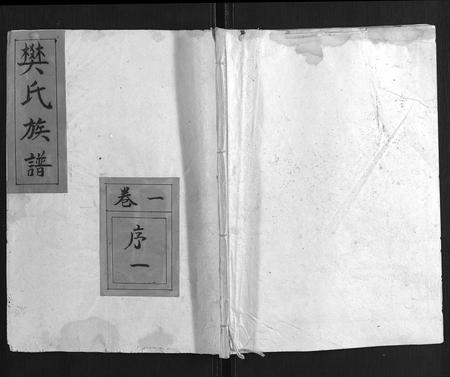 樊氏族譜
卷一
序一